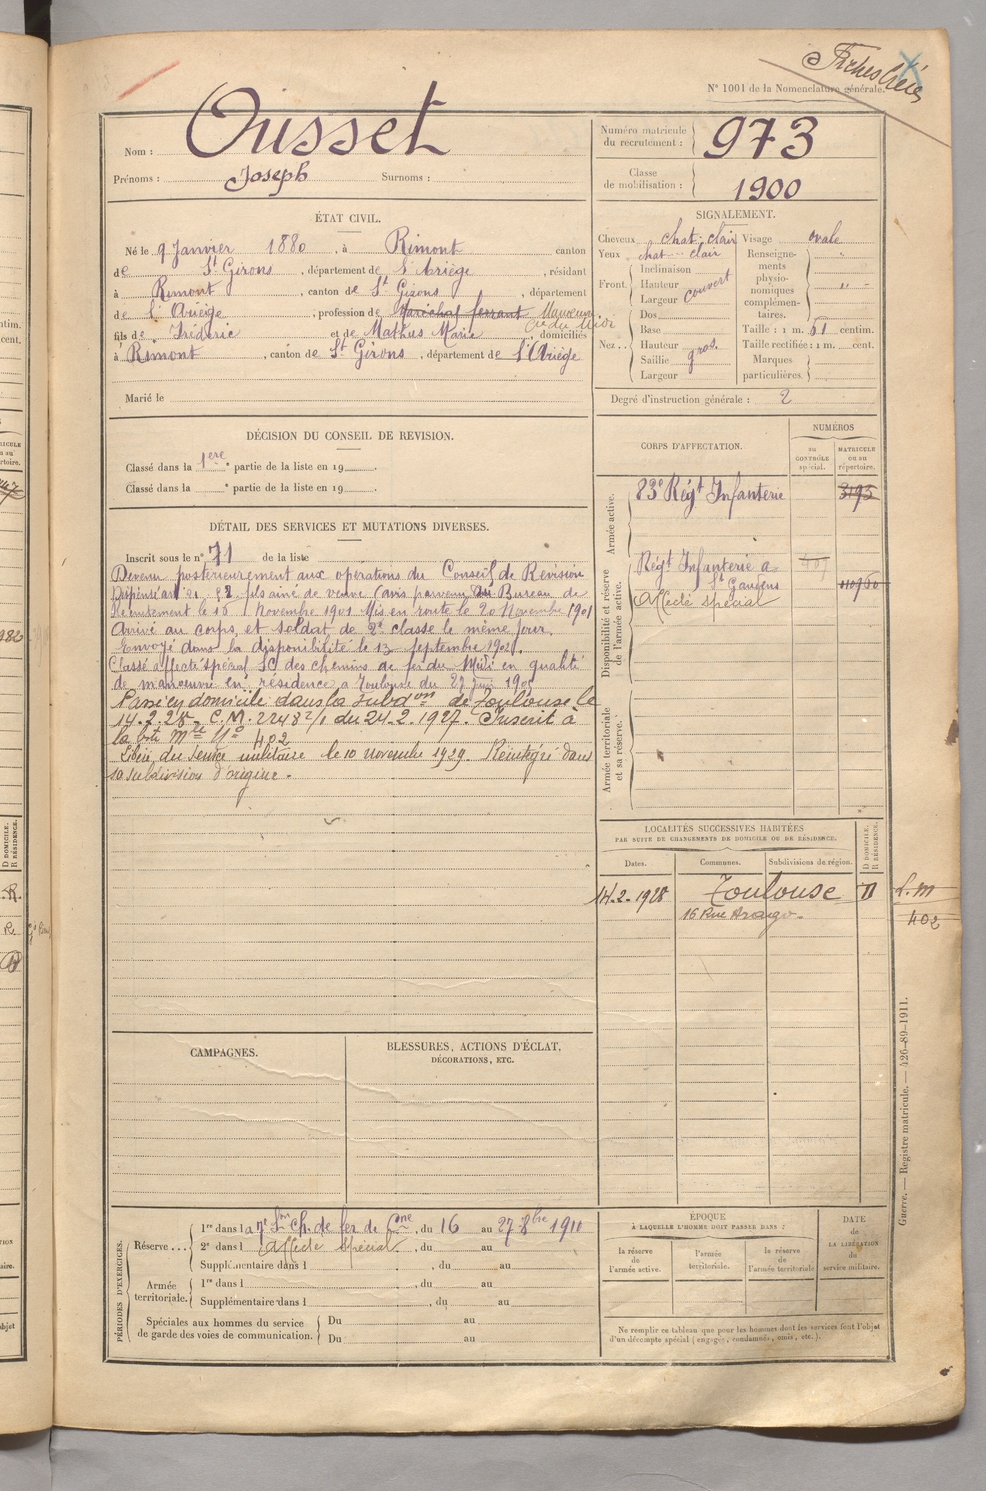 Fiches
N° 1001 de la Nomenclature générale.
Nom : Ousset
Prénoms : Joseph Surnoms :
Numéro matricule du recrutement : 973
Classe de mobilisation : 1900
ÉTAT CIVIL.
Né le 9 Janvier 1880, à Rimont canton
de St Girons, département de l'Ariège, résidant
à Rimont, canton de St Girons, département
de l'Ariège, profession de Maréchal ferrant Manœuvre
Cie du Midi
fils de Frédéric et de Mathus Marie domiciliés
à Rimont, canton de St Girons, département de l'Ariège
Marié le
SIGNALEMENT.
Cheveux chat-clair Visage ovale
Yeux chat-clair
Front. Inclinaison
Hauteur couvert
Largeur
Nez.. Dos
Base
Hauteur gros.
Saillie
Largeur
Renseignements physionomiques complémentaires.
Taille : 1 m. 51 centim.
Taille rectifiée : 1 m. cent.
Marques particulières.
Degré d'instruction générale : 2
DÉCISION DU CONSEIL DE REVISION.
Classé dans la 1ere partie de la liste en 19
Classé dans la e partie de la liste en 19
CORPS D'AFFECTATION.
NUMÉROS
au CONTRÔLE spécial.
MATRICULE ou au répertoire.
Armée active.
83e Régt Infanterie 3195
Disponibilité et réserve de l'armée active.
Régt Infanterie à 407
St Gaudens
Affecté spécial
Armée territoriale et sa réserve.
DÉTAIL DES SERVICES ET MUTATIONS DIVERSES.
Inscrit sous le n° 71 de la liste
Devenu postérieurement aux opérations du Conseil de Révision
Dispensé art 21. 22 fils aîné de veuve (avis parvenu au Bureau de
Recrutement le 15 Novembre 1901 Mis en route le 20 Novembre 1901
Arrivé au corps et soldat de 2e classe le même jour.
Envoyé dans la disponibilité le 13 septembre 1902.
Classé affecté spécial SC des chemins de fer du Midi en qualité
de manœuvre en résidence à Toulouse du 27 Juin 190
Passé en domicile dans la subdon de Toulouse le
14-2-28. C.M. 22482/1 du 24-2-1927. Inscrit à
la Mle N° 402
Libéré du service militaire le 10 novembre 1929. Réintégré dans
sa subdivision d'origine.
LOCALITÉS SUCCESSIVES HABITÉES
PAR SUITE DE CHANGEMENTS DE DOMICILE OU DE RÉSIDENCE.
Dates. Communes. Subdivisions de région. D DOMICILE. R RÉSIDENCE.
14-2-1928 Toulouse D
16 Rue Arago.
L.M
402
CAMPAGNES.
BLESSURES, ACTIONS D'ÉCLAT, DÉCORATIONS, ETC.
PÉRIODES D'EXERCICES.
Réserve... 1re dans la 7e Son Ch. de fer de Cne, du 16 au 27 8bre 1910
2e dans l Affecté spécial, du au
Supplémentaire dans l, du au
Armée territoriale. 1re dans l, du au
Supplémentaire dans l, du au
Spéciales aux hommes du service de garde des voies de communication. Du au
Du au
ÉPOQUE
À LAQUELLE L'HOMME DOIT PASSER DANS :
la réserve de l'armée active.
l'armée territoriale.
la réserve de l'armée territoriale
DATE de LA LIBÉRATION du service militaire.
Ne remplir ce tableau que pour les hommes dont les services font l'objet
d'un décompte spécial (engagés, condamnés, omis, etc.).
Guerre. — Registre matricule. — 426-89-1911.